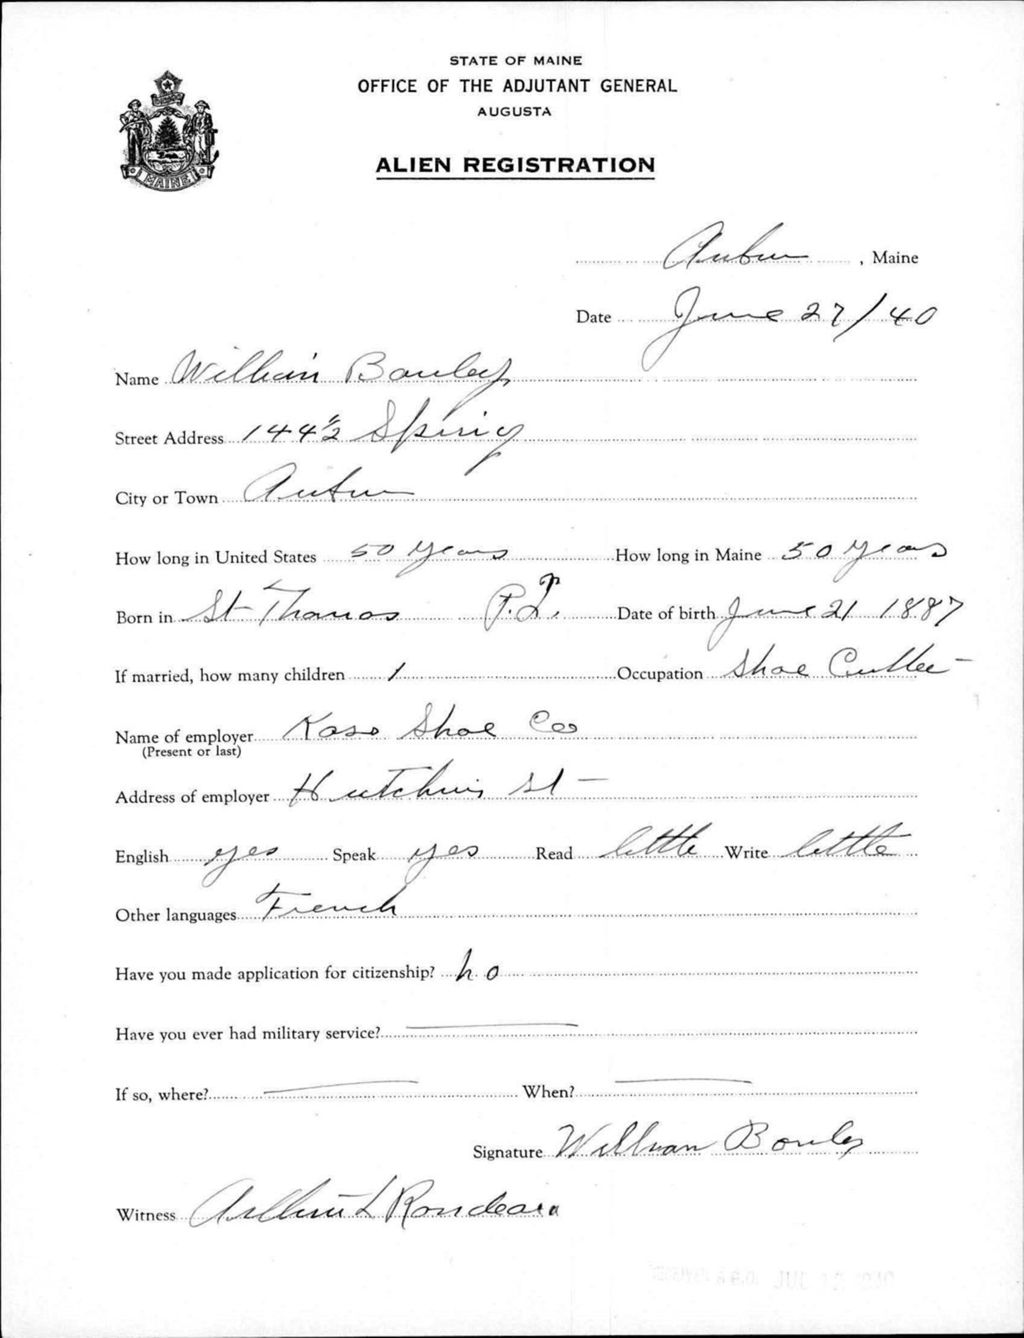 STATE OF MAINE
OFFICE OF THE ADJUTANT GENERAL
AUGUSTA
ALIEN REGISTRATION
MAINE
Auburn, Maine
Date June 27/40
Name William Bouley
Street Address 144 1/2 Spring
City or Town Auburn
How long in United States 50 years How long in Maine 50 years
Born in St Thomas P.Q. Date of birth June 21 1887
If married, how many children 1 Occupation Shoe Cutter
Name of employer Shoe Co
(Present or last)
Address of employer Hutchins St
English yes Speak yes Read little Write little
Other languages French
Have you made application for citizenship? no
Have you ever had military service? —
If so, where? — When? —
Signature William Bouley
Witness L Rondeau